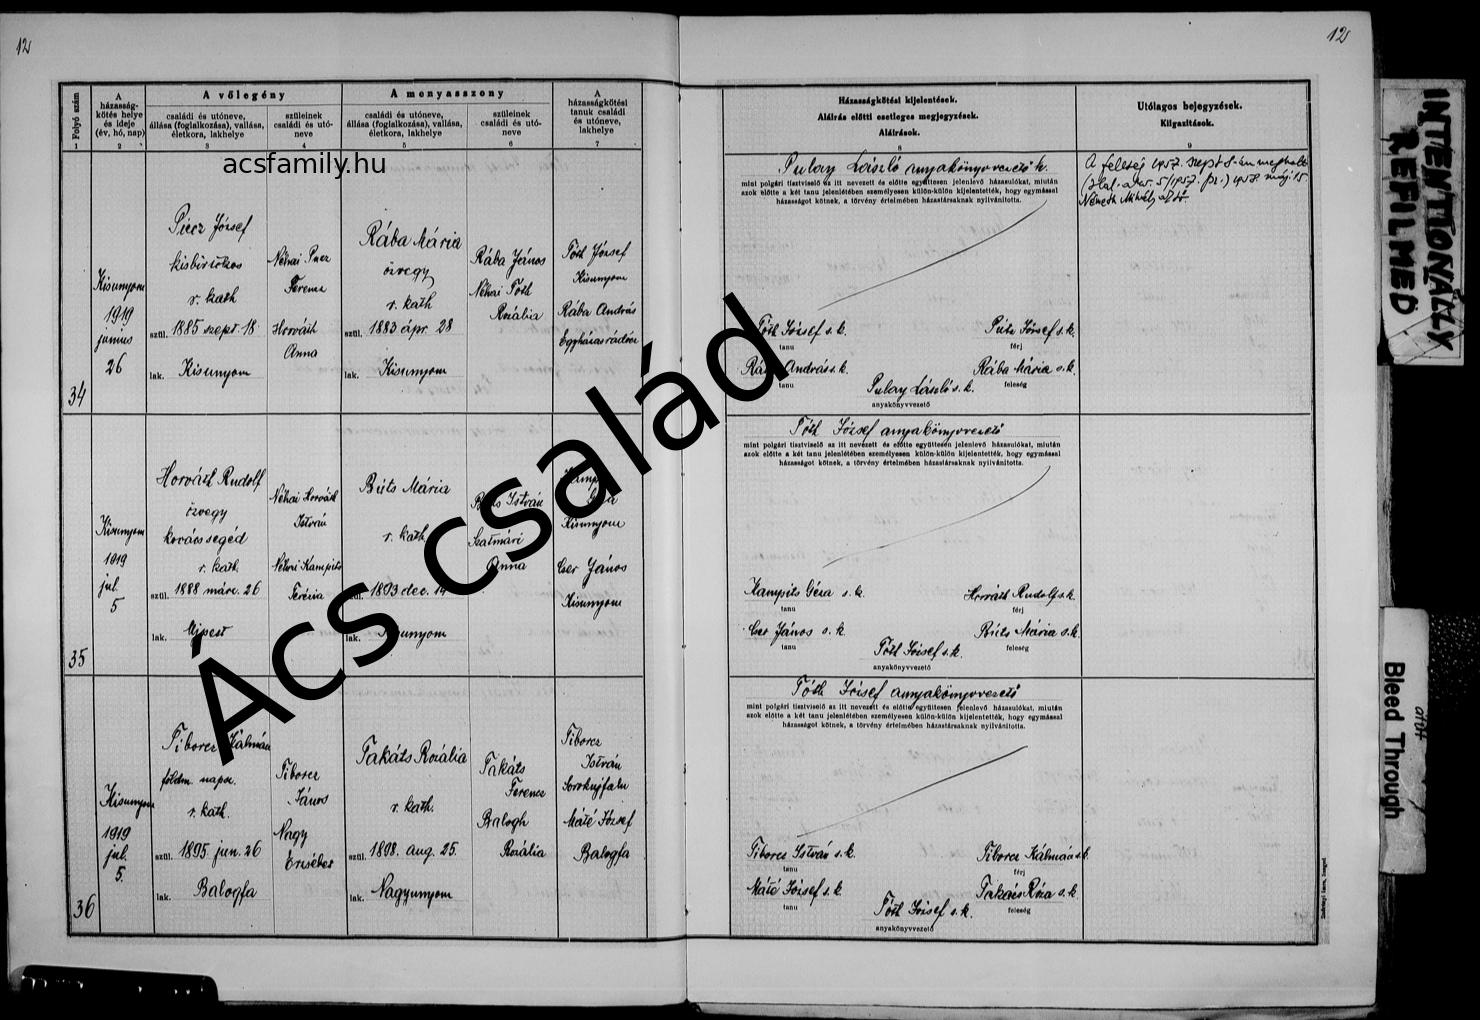 12
12
Folyó szám
A házasságkötés helye és ideje (év, hó, nap)
A vőlegény
családi és utóneve, állása (foglalkozása), vallása, életkora, lakhelye
szüleinek családi és utóneve
A menyasszony
családi és utóneve, állása (foglalkozása), vallása, életkora, lakhelye
szüleinek családi és utóneve
A házasságkötési tanuk családi és utóneve, lakhelye
Házasságkötési kijelentések.
Aláírás előtti esetleges megjegyzések.
Aláírások.
Utólagos bejegyzések.
Kiigazítások.
1 2 3 4 5 6 7 8 9
acsfamily.hu
34
Kisunyom
1919
junius
26
József
r. kath
szül. 1885 szept. 18
lak. Kisunyom
Néhai
Ferenc
Horváth
Anna
Rába Mária
özvegy
r. kath
szül. 1883 ápr. 28
lak. Kisunyom
Rába János
Néhai Tóth
Rozália
Tóth József
Kisunyom
Rába András
Pulay László anyakönyvvezető h.
mint polgári tisztviselő az itt nevezett és előtte együttesen jelenlevő házasulókat, miután
azok előtte a két tanu jelenlétében személyesen külön-külön kijelentették, hogy egymással
házasságot kötnek, a törvény értelmében házastársaknak nyilvánította.
Tóth József s. k.
tanu
József s. k.
férj
András s. k.
tanu
Rába Mária s. k.
feleség
Pulay László s. k.
anyakönyvvezető
A feleség 1957. szept 8-án meghalt
Németh Mihály
35
Kisunyom
1919
jul.
5
Horváth Rudolf
özvegy
kovácssegéd
r. kath.
szül. 1888 márc. 26
lak. Ujpest
Néhai Horváth
István
Néhai Kampits
Terézia
Mária
r. kath.
1893 dec. 14
lak. Kisunyom
István
Szatmári
Anna
Géza
Kisunyom
Cser János
Kisunyom
Tóth József anyakönyvvezető
mint polgári tisztviselő az itt nevezett és előtte együttesen jelenlevő házasulókat, miután
azok előtte a két tanu jelenlétében személyesen külön-külön kijelentették, hogy egymással
házasságot kötnek, a törvény értelmében házastársaknak nyilvánította.
Kampits Géza s. k.
tanu
Horváth Rudolf s. k.
férj
Cser János s. k.
tanu
Mária s. k.
feleség
Tóth József s. k.
anyakönyvvezető
36
Kisunyom
1919
jul.
5.
Tiborcz Kálmán
földm. napsz.
r. kath.
szül. 1895 jun. 26
lak. Balogfa
Tiborcz
János
Nagy
Erzsébet
Takáts Rozália
r. kath.
szül. 1898. aug. 25.
lak. Nagyunyom
Takáts
Ferencz
Balogh
Rozália
Tiborcz
István
Sorokujfalu
Máté József
Balogfa
Tóth József anyakönyvvezető
mint polgári tisztviselő az itt nevezett és előtte együttesen jelenlevő házasulókat, miután
azok előtte a két tanu jelenlétében személyesen külön-külön kijelentették, hogy egymással
házasságot kötnek, a törvény értelmében házastársaknak nyilvánította.
Tiborcz István s. k.
tanu
Tiborcz Kálmán s. k.
férj
Máté József s. k.
tanu
Takács Róza s. k.
feleség
Tóth József s. k.
anyakönyvvezető
Ács család
INTENTIONALLY
REFILMED
Bleed Through